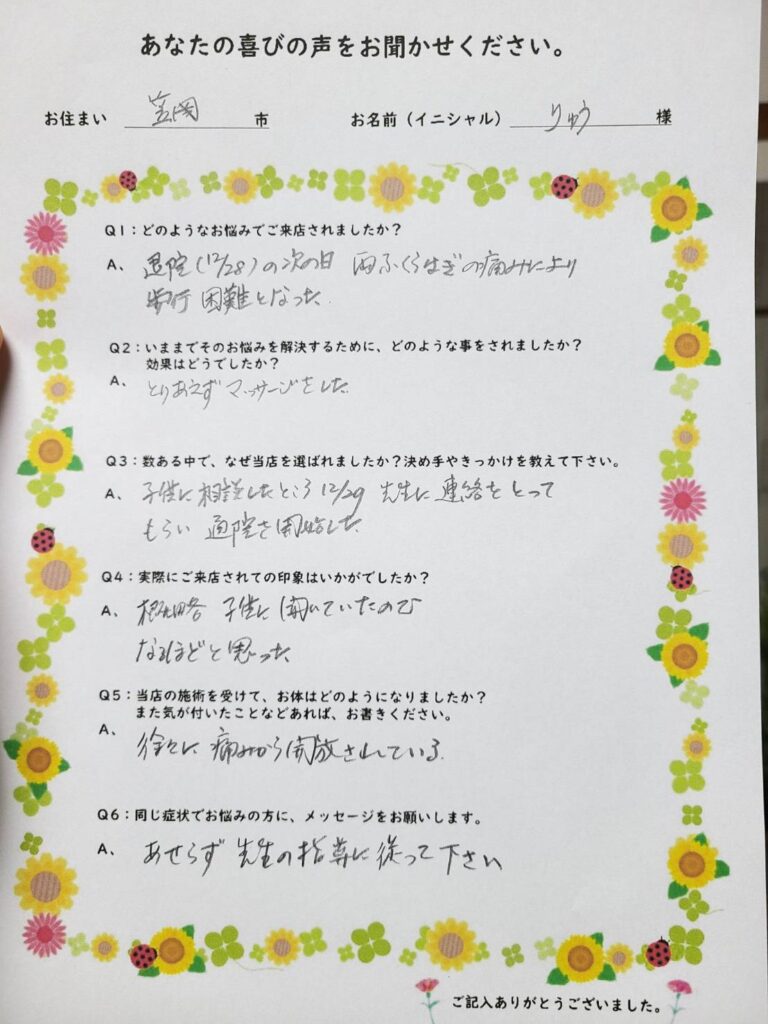 あなたの喜びの声をお聞かせください。
お住まい 笠岡 市 お名前（イニシャル） りゅう 様
Q1：どのようなお悩みでご来店されましたか？
A、 退院(12/28)の次の日 両ふくらはぎの痛みにより
歩行困難となった.
Q2：いままでそのお悩みを解決するために、どのような事をされましたか？
効果はどうでしたか？
A、 とりあえずマッサージをした.
Q3：数ある中で、なぜ当店を選ばれましたか？決め手やきっかけを教えて下さい。
A、 子供に相談したところ 12/29 先生に連絡をとって
もらい 通院を開始した.
Q4：実際にご来店されての印象はいかがでしたか？
A、 子供に聞いていたので
なるほどと思った.
Q5：当店の施術を受けて、お体はどのようになりましたか？
また気が付いたことなどあれば、お書きください。
A、 徐々に痛みから開放されている.
Q6：同じ症状でお悩みの方に、メッセージをお願いします。
A、 あせらず 先生の指導に従って下さい
ご記入ありがとうございました。